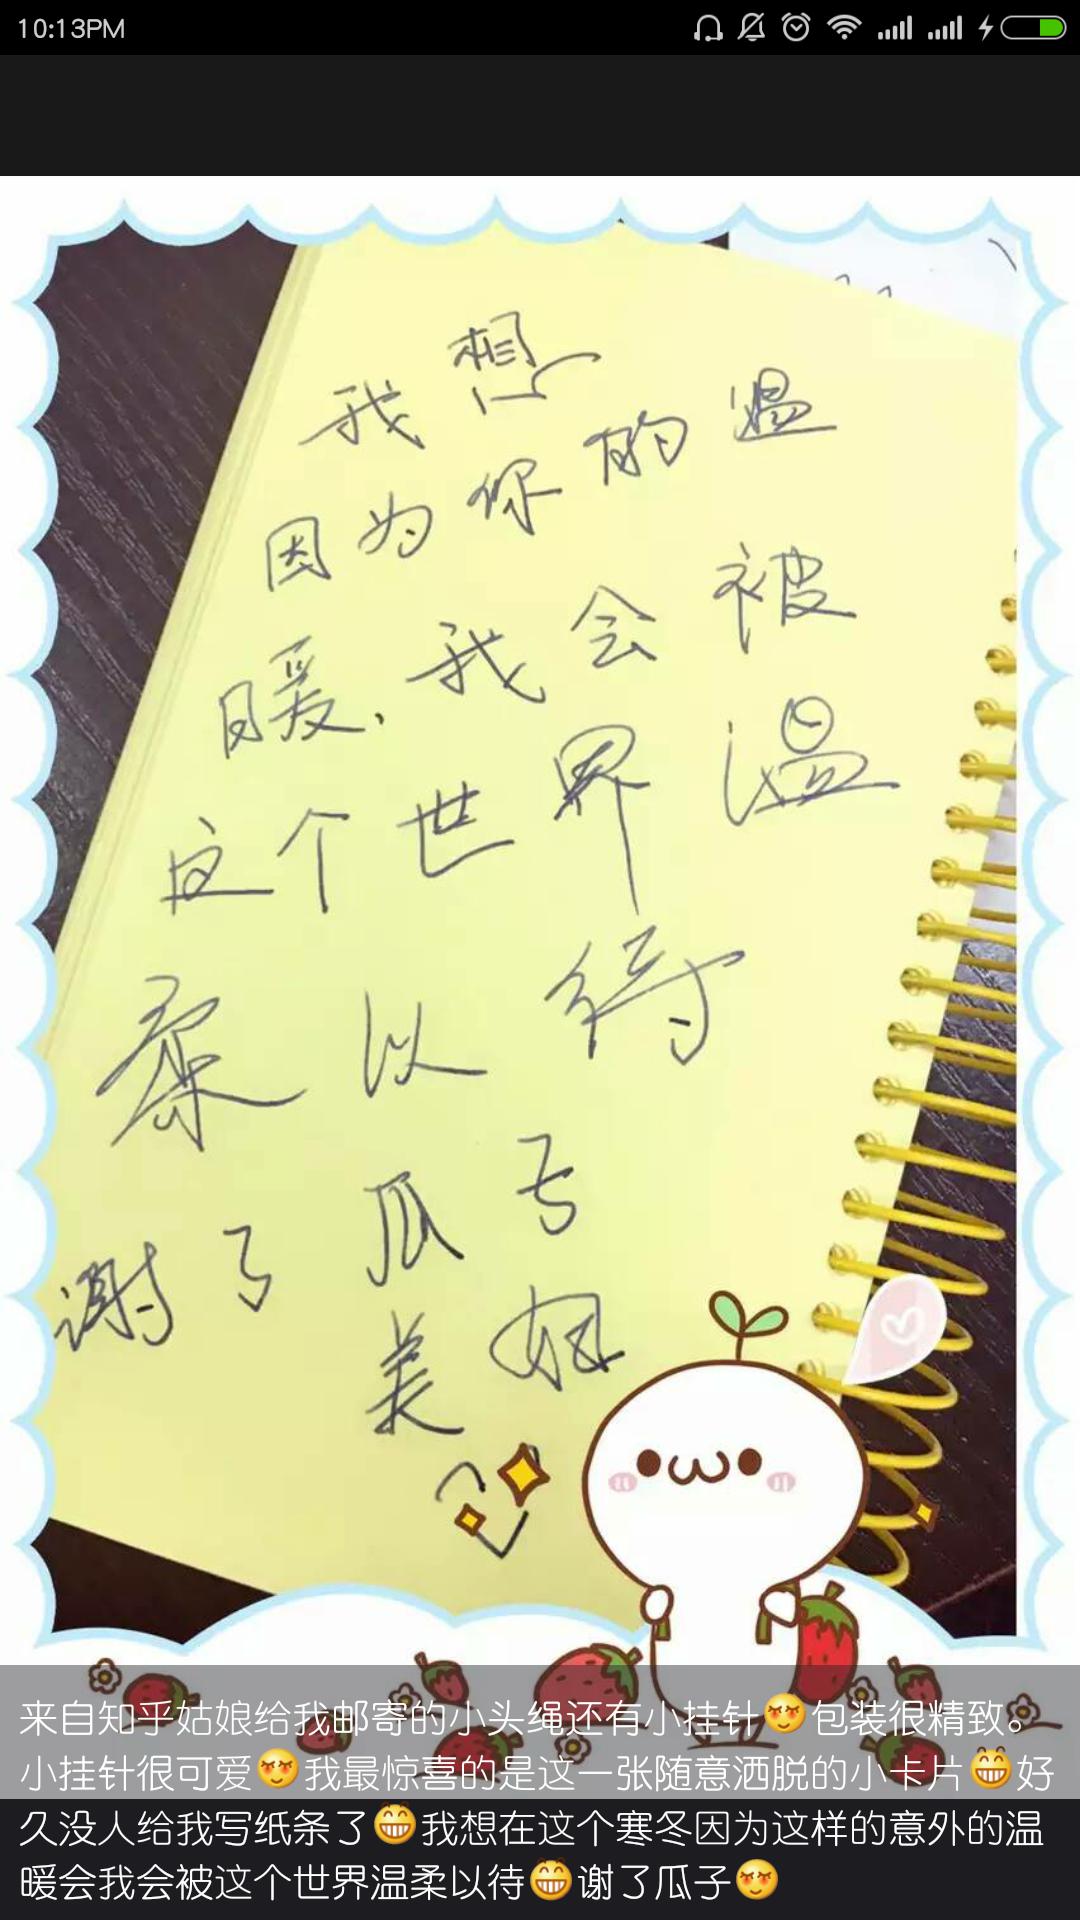 10:13PM
我想
因为你的温
暖，我会被
这个世界温
柔以待
谢了瓜子
美妞
来自知乎姑娘给我邮寄的小头绳还有小挂针😍包装很精致。
小挂针很可爱😍我最惊喜的是这一张随意洒脱的小卡片😁好
久没人给我写纸条了😁我想在这个寒冬因为这样的意外的温
暖会我会被这个世界温柔以待😁谢了瓜子😍